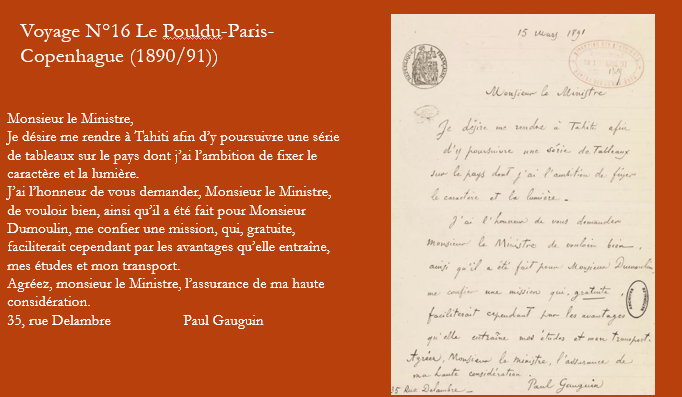 Voyage N°16 Le Pouldu-Paris-
Copenhague (1890/91))
Monsieur le Ministre,
Je désire me rendre à Tahiti afin d'y poursuivre une série
de tableaux sur le pays dont j'ai l'ambition de fixer le
caractère et la lumière.
J'ai l'honneur de vous demander, Monsieur le Ministre,
de vouloir bien, ainsi qu'il a été fait pour Monsieur
Dumoulin, me confier une mission, qui, gratuite,
faciliterait cependant par les avantages qu'elle entraîne,
mes études et mon transport.
Agréez, monsieur le Ministre, l'assurance de ma haute
considération.
35, rue Delambre Paul Gauguin
15 Mars 1891
Monsieur le Ministre
Je désire me rendre à Tahiti afin
d'y poursuivre une série de Tableaux
sur le pays dont j'ai l'ambition de fixer
le caractère et la lumière.
J'ai l'honneur de vous demander
monsieur le Ministre de vouloir bien,
ainsi qu'il a été fait pour Monsieur Dumoulin,
me confier une mission qui, gratuite,
faciliterait cependant par les avantages
qu'elle entraîne mes études et mon transport.
Agréez, Monsieur le ministre, l'assurance de
ma haute considération.
35 Rue Delambre _ Paul Gauguin